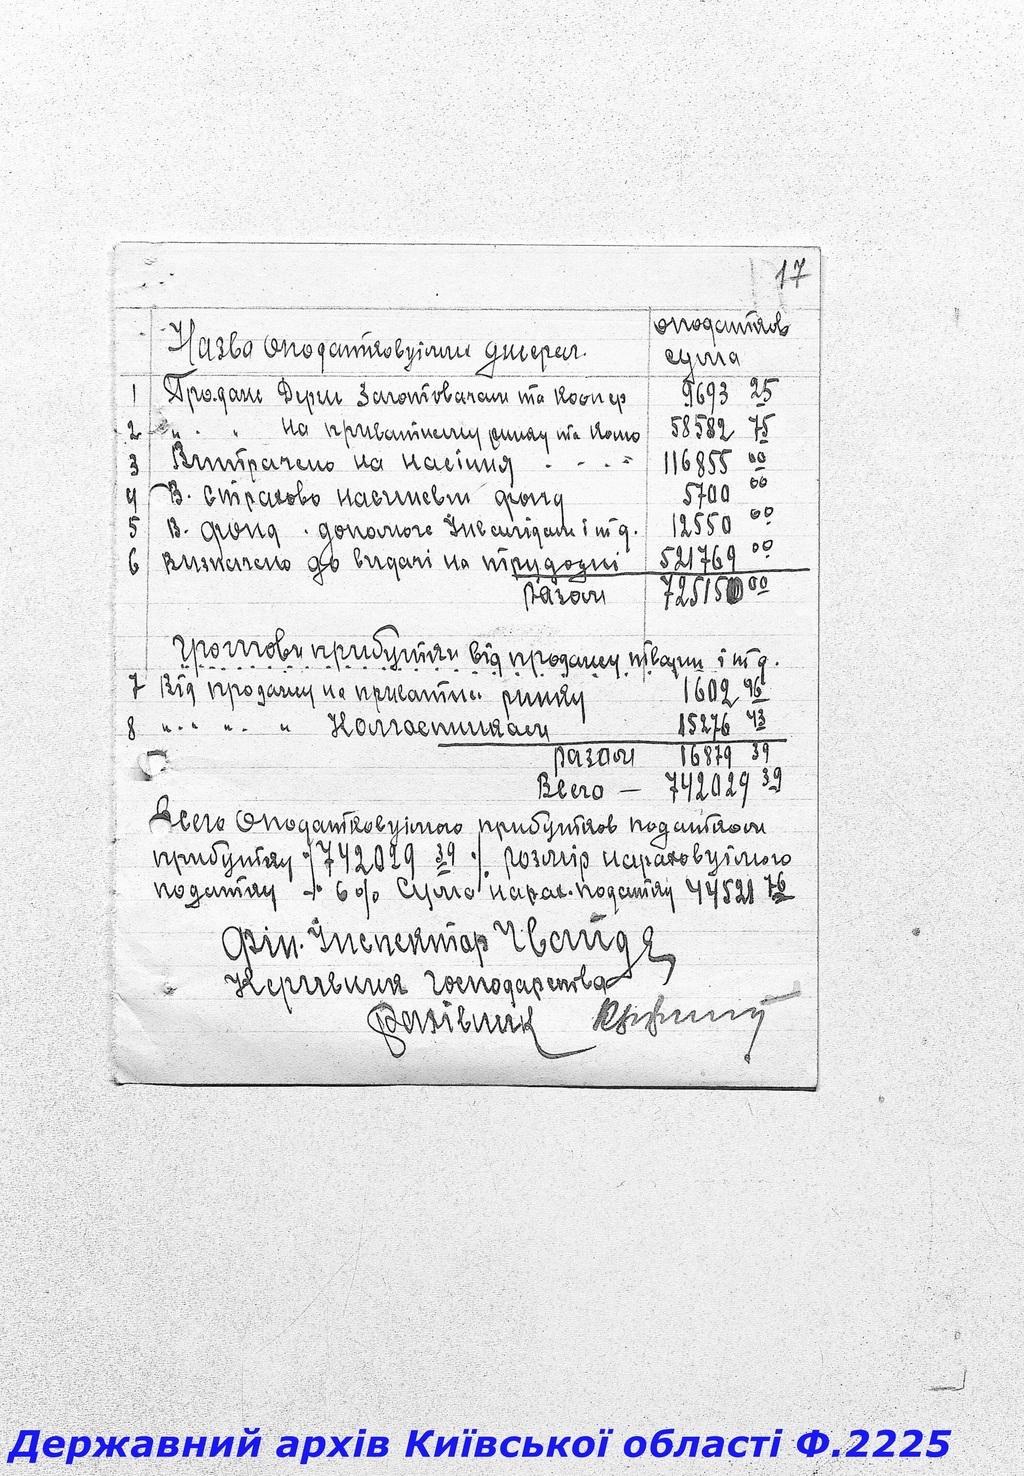 17
Назва оподатковуіми джерел. оподатков
сума
1 Продаж Держ Заготовачам та коопер 9693 25
2 " . " на приватнему ринку та комо 58582 75
3 Витрачено на насіння . - . - " 116855 00
4 В. страхово насіневи фонд 5700 00
5 В. фонд . допомоге Інвалідам і т д. 12550 00
6 визначено до видачі на трудодні 521769 00
разом 725150 00
грошови прибутки від продажу тварин і т д.
7 Від продажу на приватни ринку 1602 96
8 " . " " . " Колгоспникам 15276 43
разом 16879 39
Всего — 742029 39
Всего оподатковуімого прибутков податком
прибутку ./742029 39 ./. розмір нараховуімого
податку -.- 6% Сума нарах. податку 44521 76
Фін. Інспектор
Керивник господарства
Рахівник
Державний архів Київської області Ф.2225